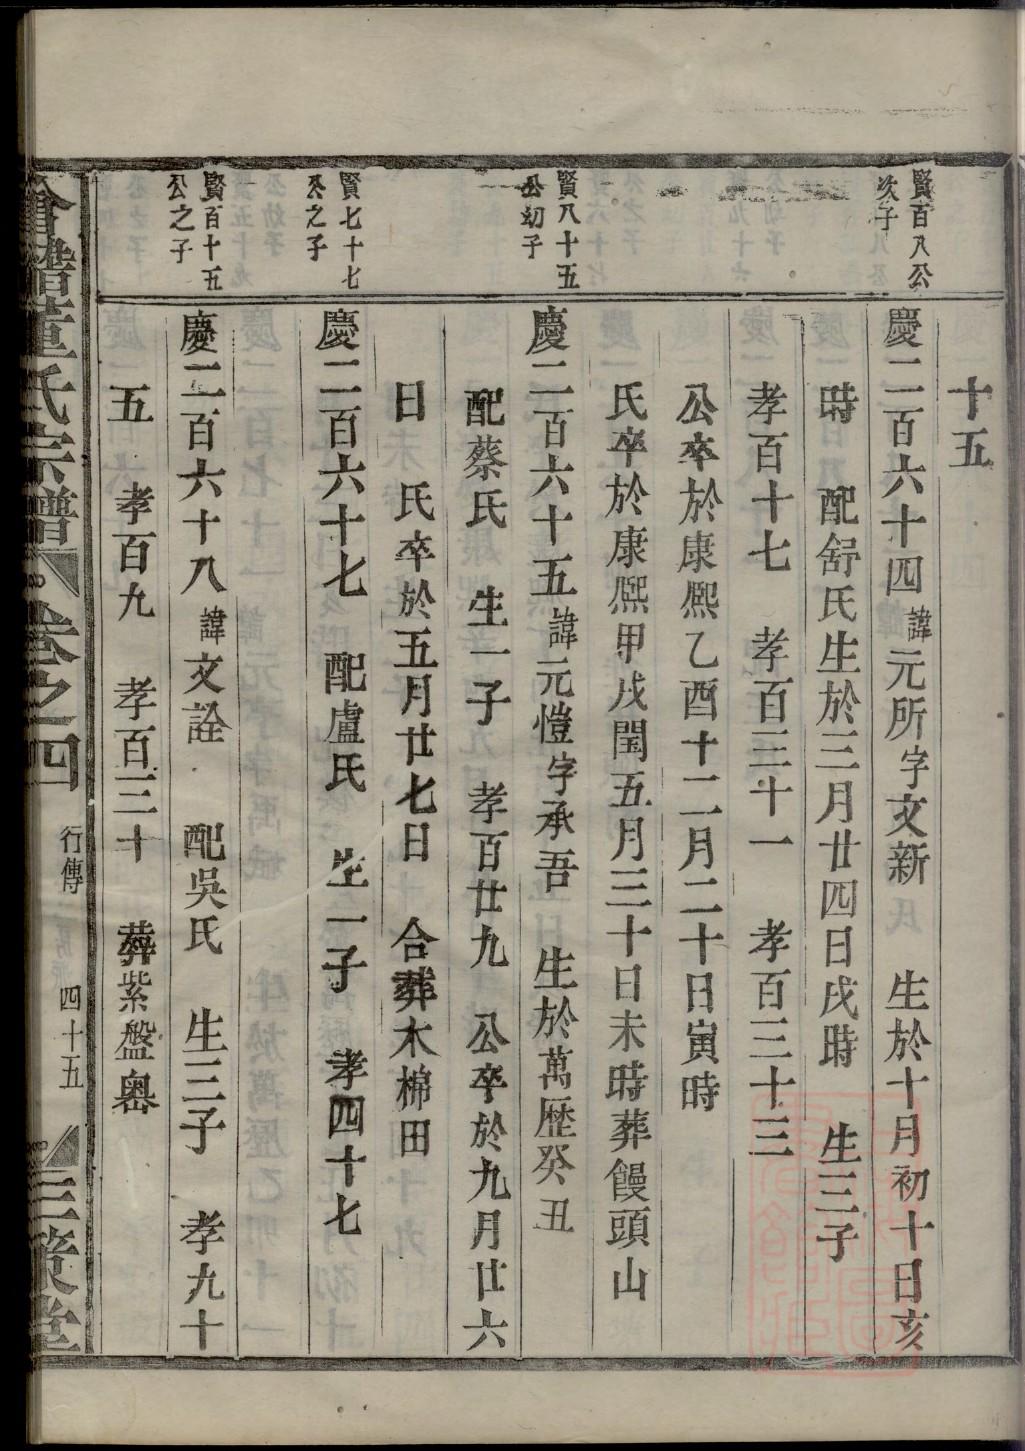 十五
賢百八公
次子
慶二百六十四諱元所字文新 生於十月初十日亥
時 配舒氏生於三月廿四日戌時 生三子
孝百十七 孝百三十一 孝百三十三
公卒於康熙乙酉十二月二十日寅時
氏卒於康熙甲戌閏五月三十日未時葬饅頭山
賢八十五
公幼子
慶二百六十五諱元愷字承吾 生於萬歷癸丑
配蔡氏 生一子 孝百廿九 公卒於九月廿六
日 氏卒於五月廿七日 合葬木棉田
賢七十七
公之子
慶二百六十七 配盧氏 生一子 孝四十七
賢百十五
公之子
慶二百六十八諱文詮 配吳氏 生三子 孝九十
五 孝百九 孝百三十 葬紫盤嶴
董氏宗譜 卷之四 行傳 四十五 三策堂